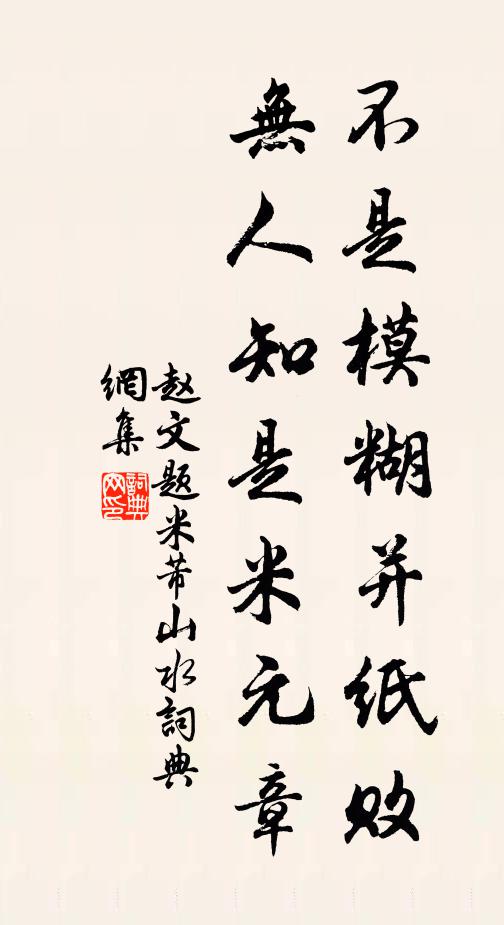 不是模糊并纸败
無人知是米元章
赵文题米芾山水詞典
網集
詞典
网印